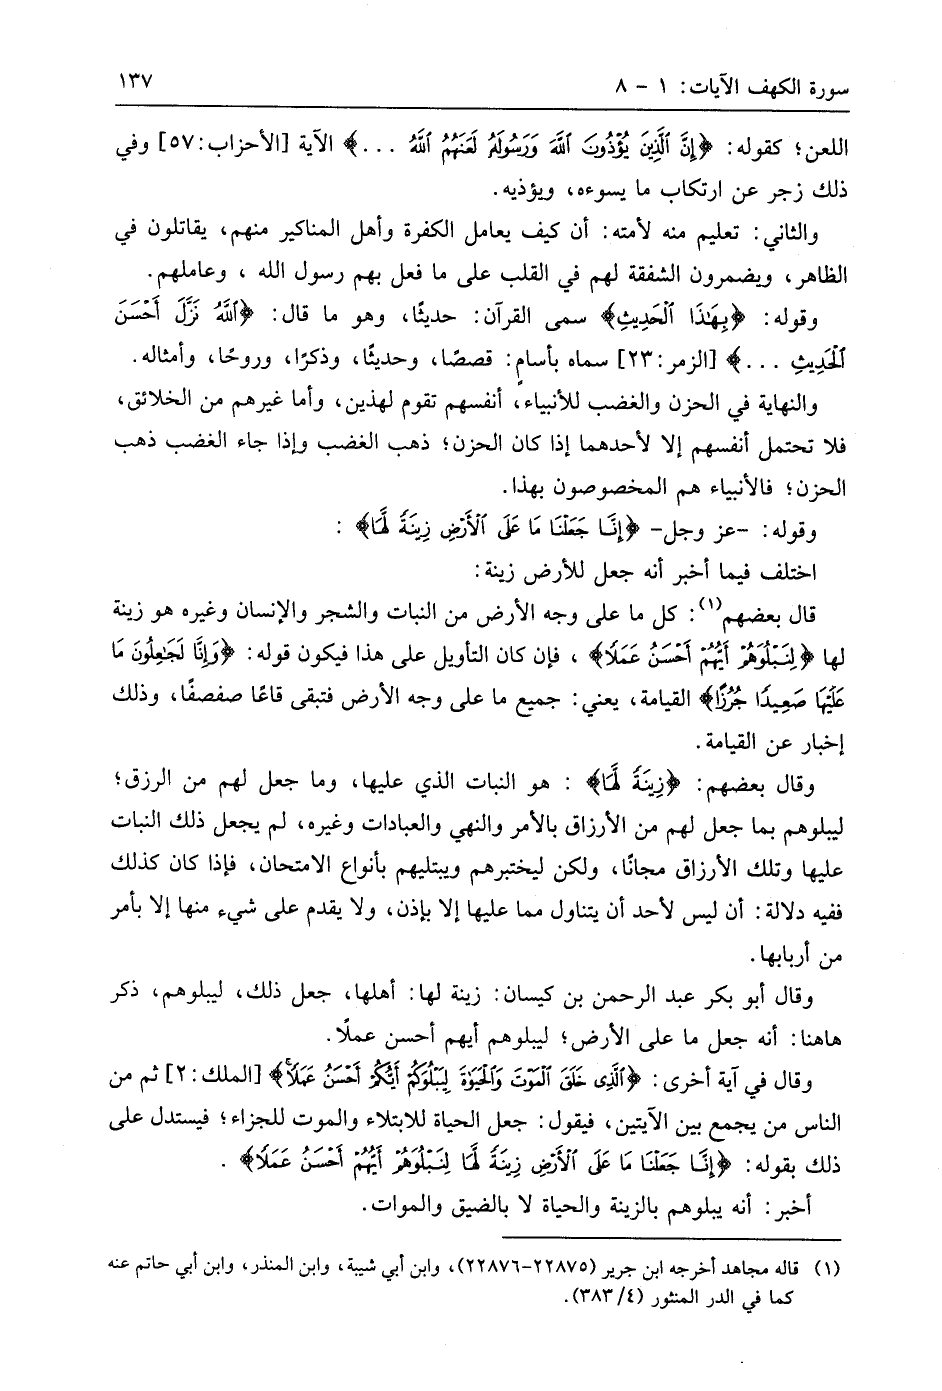 سورة الكهف الآيات: ١ - ٨ ١٣٧
اللعن؛ كقوله: ﴿إِنَّ ٱلَّذِينَ يُؤۡذُونَ ٱللَّهَ وَرَسُولَهُۥ لَعَنَهُمُ ٱللَّهُ ...﴾ الآية [الأحزاب:٥٧] وفي
ذلك زجر عن ارتكاب ما يسوءه، ويؤذيه.
والثاني: تعليم منه لأمته: أن كيف يعامل الكفرة وأهل المناكير منهم، يقاتلون في
الظاهر، ويضمرون الشفقة لهم في القلب على ما فعل بهم رسول الله ، وعاملهم.
وقوله: ﴿بِهَٰذَا ٱلۡحَدِيثِ﴾ سمى القرآن: حديثًا، وهو ما قال: ﴿ٱللَّهُ نَزَّلَ أَحۡسَنَ
ٱلۡحَدِيثِ ...﴾ [الزمر:٢٣] سماه بأسامٍ: قصصًا، وحديثًا، وذكرًا، وروحًا، وأمثاله.
والنهاية في الحزن والغضب للأنبياء، أنفسهم تقوم لهذين، وأما غيرهم من الخلائق،
فلا تحتمل أنفسهم إلا لأحدهما إذا كان الحزن؛ ذهب الغضب وإذا جاء الغضب ذهب
الحزن؛ فالأنبياء هم المخصوصون بهذا.
وقوله: -عز وجل- ﴿إِنَّا جَعَلۡنَا مَا عَلَى ٱلۡأَرۡضِ زِينَةٗ لَّهَا﴾ :
اختلف فيما أخبر أنه جعل للأرض زينة:
قال بعضهم(١): كل ما على وجه الأرض من النبات والشجر والإنسان وغيره هو زينة
لها ﴿لِنَبۡلُوَهُمۡ أَيُّهُمۡ أَحۡسَنُ عَمَلٗا﴾ ، فإن كان التأويل على هذا فيكون قوله: ﴿وَإِنَّا لَجَٰعِلُونَ مَا
عَلَيۡهَا صَعِيدٗا جُرُزًا﴾ القيامة، يعني: جميع ما على وجه الأرض فتبقى قاعًا صفصفًا، وذلك
إخبار عن القيامة.
وقال بعضهم: ﴿زِينَةٗ لَّهَا﴾ : هو النبات الذي عليها، وما جعل لهم من الرزق؛
ليبلوهم بما جعل لهم من الأرزاق بالأمر والنهي والعبادات وغيره، لم يجعل ذلك النبات
عليها وتلك الأرزاق مجانًا، ولكن ليختبرهم ويبتليهم بأنواع الامتحان، فإذا كان كذلك
ففيه دلالة: أن ليس لأحد أن يتناول مما عليها إلا بإذن، ولا يقدم على شيء منها إلا بأمر
من أربابها.
وقال أبو بكر عبد الرحمن بن كيسان: زينة لها: أهلها، جعل ذلك، ليبلوهم، ذكر
هاهنا: أنه جعل ما على الأرض؛ ليبلوهم أيهم أحسن عملًا.
وقال في آية أخرى: ﴿ٱلَّذِي خَلَقَ ٱلۡمَوۡتَ وَٱلۡحَيَوٰةَ لِيَبۡلُوَكُمۡ أَيُّكُمۡ أَحۡسَنُ عَمَلٗاۚ﴾ [الملك:٢] ثم من
الناس من يجمع بين الآيتين، فيقول: جعل الحياة للابتلاء والموت للجزاء؛ فيستدل على
ذلك بقوله: ﴿إِنَّا جَعَلۡنَا مَا عَلَى ٱلۡأَرۡضِ زِينَةٗ لَّهَا لِنَبۡلُوَهُمۡ أَيُّهُمۡ أَحۡسَنُ عَمَلٗا﴾ .
أخبر: أنه يبلوهم بالزينة والحياة لا بالضيق والموات.
(١) قاله مجاهد أخرجه ابن جرير (٢٢٨٧٥-٢٢٨٧٦)، وابن أبي شيبة، وابن المنذر، وابن أبي حاتم عنه
كما في الدر المنثور (٣٨٣/٤).